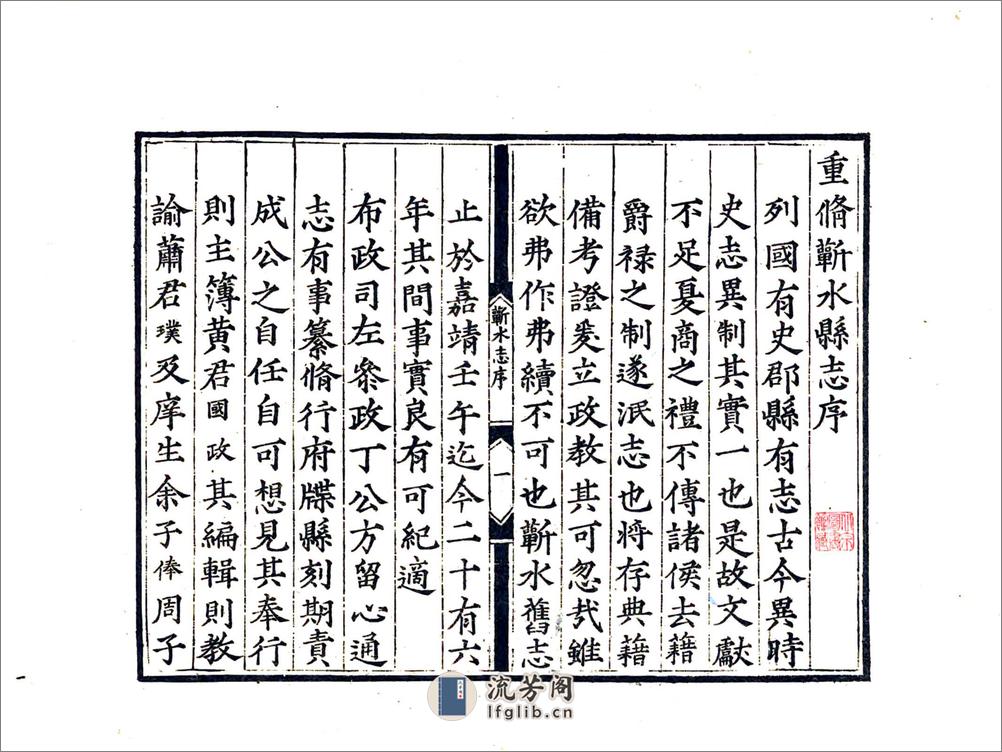 重脩蘄水縣志序
列國有史郡縣有志古今異時
史志異制其實一也是故文獻
不足夏商之禮不傳諸侯去籍
爵祿之制遂泯志也將存典籍
備考證爰立政教其可忽㢤雖
欲弗作弗續不可也蘄水舊志
蘄水志序
一
止於嘉靖壬午迄今二十有六
年其間事實良有可紀適
布政司左參政丁公方留心通
志有事纂脩行府牒縣刻期責
成公之自任自可想見其奉行
則主簿黃君國政其編輯則教
諭蕭君璞及庠生余子俸周子
流芳阁
lfglib.cn